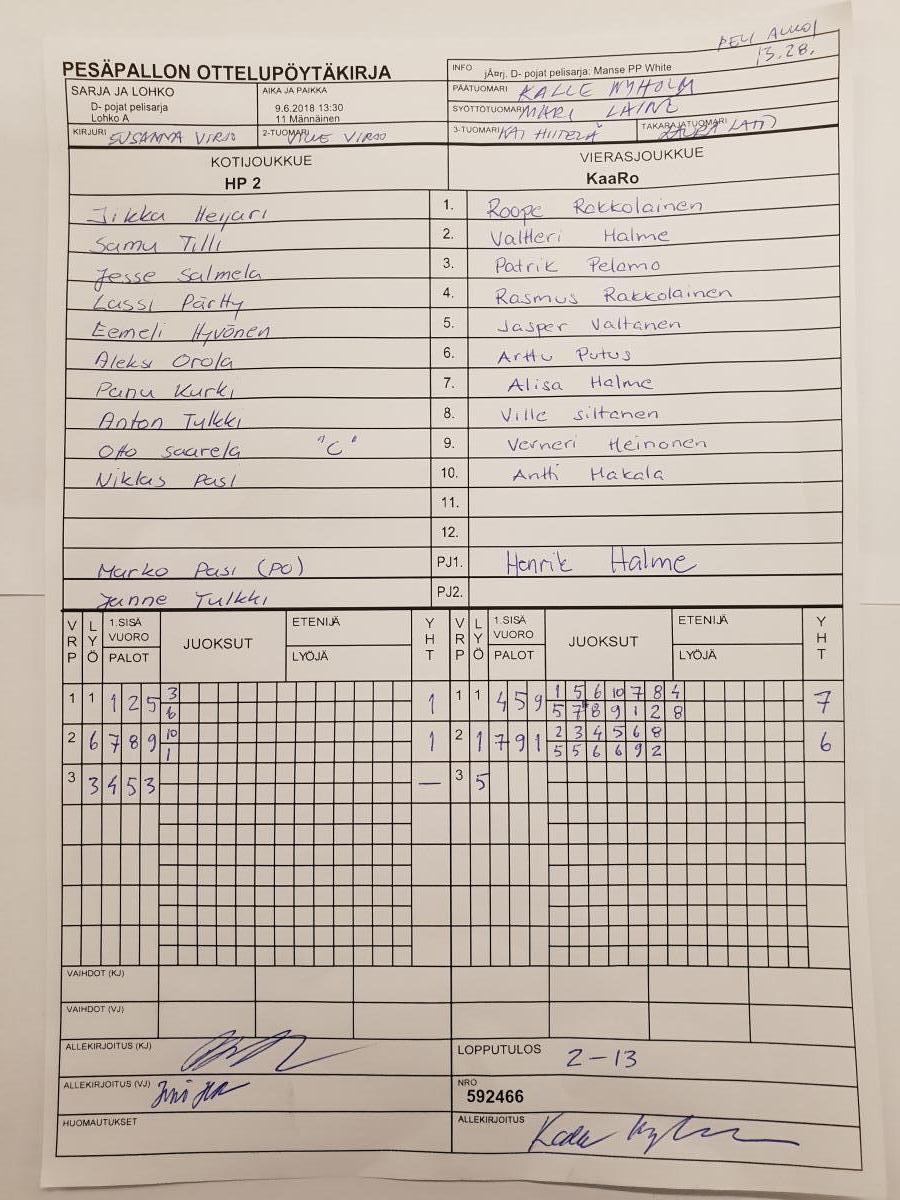 PELI ALKOI
13.28.
PESÄPALLON OTTELUPÖYTÄKIRJA
INFO jÄ¤rj. D- pojat pelisarja: Manse PP White
SARJA JA LOHKO
D- pojat pelisarja
Lohko A
AIKA JA PAIKKA
9.6.2018 13:30
11 Männäinen
PÄÄTUOMARI KALLE NYHOLM
SYÖTTÖTUOMARI MARI LAINE
KIRJURI SUSANNA VIRSO
2-TUOMARI VILLE VIRSO
3-TUOMARI KATI HIITELÄ
TAKARAJATUOMARI LAURA
KOTIJOUKKUE
HP 2
VIERASJOUKKUE
KaaRo
Jikka Heijari 1. Roope Rakkolainen
Samu Tilli 2. Valtteri Halme
Jesse Salmela 3. Patrik Pelamo
Lassi Pärtty 4. Rasmus Rakkolainen
Eemeli Hyvönen 5. Jasper Valtanen
Aleksi Orola 6. Arttu Putus
Panu Kurki 7. Alisa Halme
Anton Tulkki 8. Ville Siltanen
Otto Saarela "C" 9. Verneri Heinonen
Niklas Pasi 10. Antti Hakala
11.
12.
Marko Pasi (PO) PJ1. Henrik Halme
Janne Tulkki PJ2.
VRP LYÖ 1.SISÄ VUORO PALOT JUOKSUT ETENIJÄ LYÖJÄ YHT VRP LYÖ 1.SISÄ VUORO PALOT JUOKSUT ETENIJÄ LYÖJÄ YHT
1 1 1 2 5 3 1 1 1 4 5 9 1 5 6 10 7 8 4 7
6 5 7 8 9 1 2 8
2 6 7 8 9 10 1 2 1 7 9 1 2 3 4 5 6 8 6
1 5 5 6 6 9 2
3 3 4 5 3 — 3 5
VAIHDOT (KJ)
VAIHDOT (VJ)
ALLEKIRJOITUS (KJ)
LOPPUTULOS 2-13
ALLEKIRJOITUS (VJ)
NRO
592466
HUOMAUTUKSET
ALLEKIRJOITUS